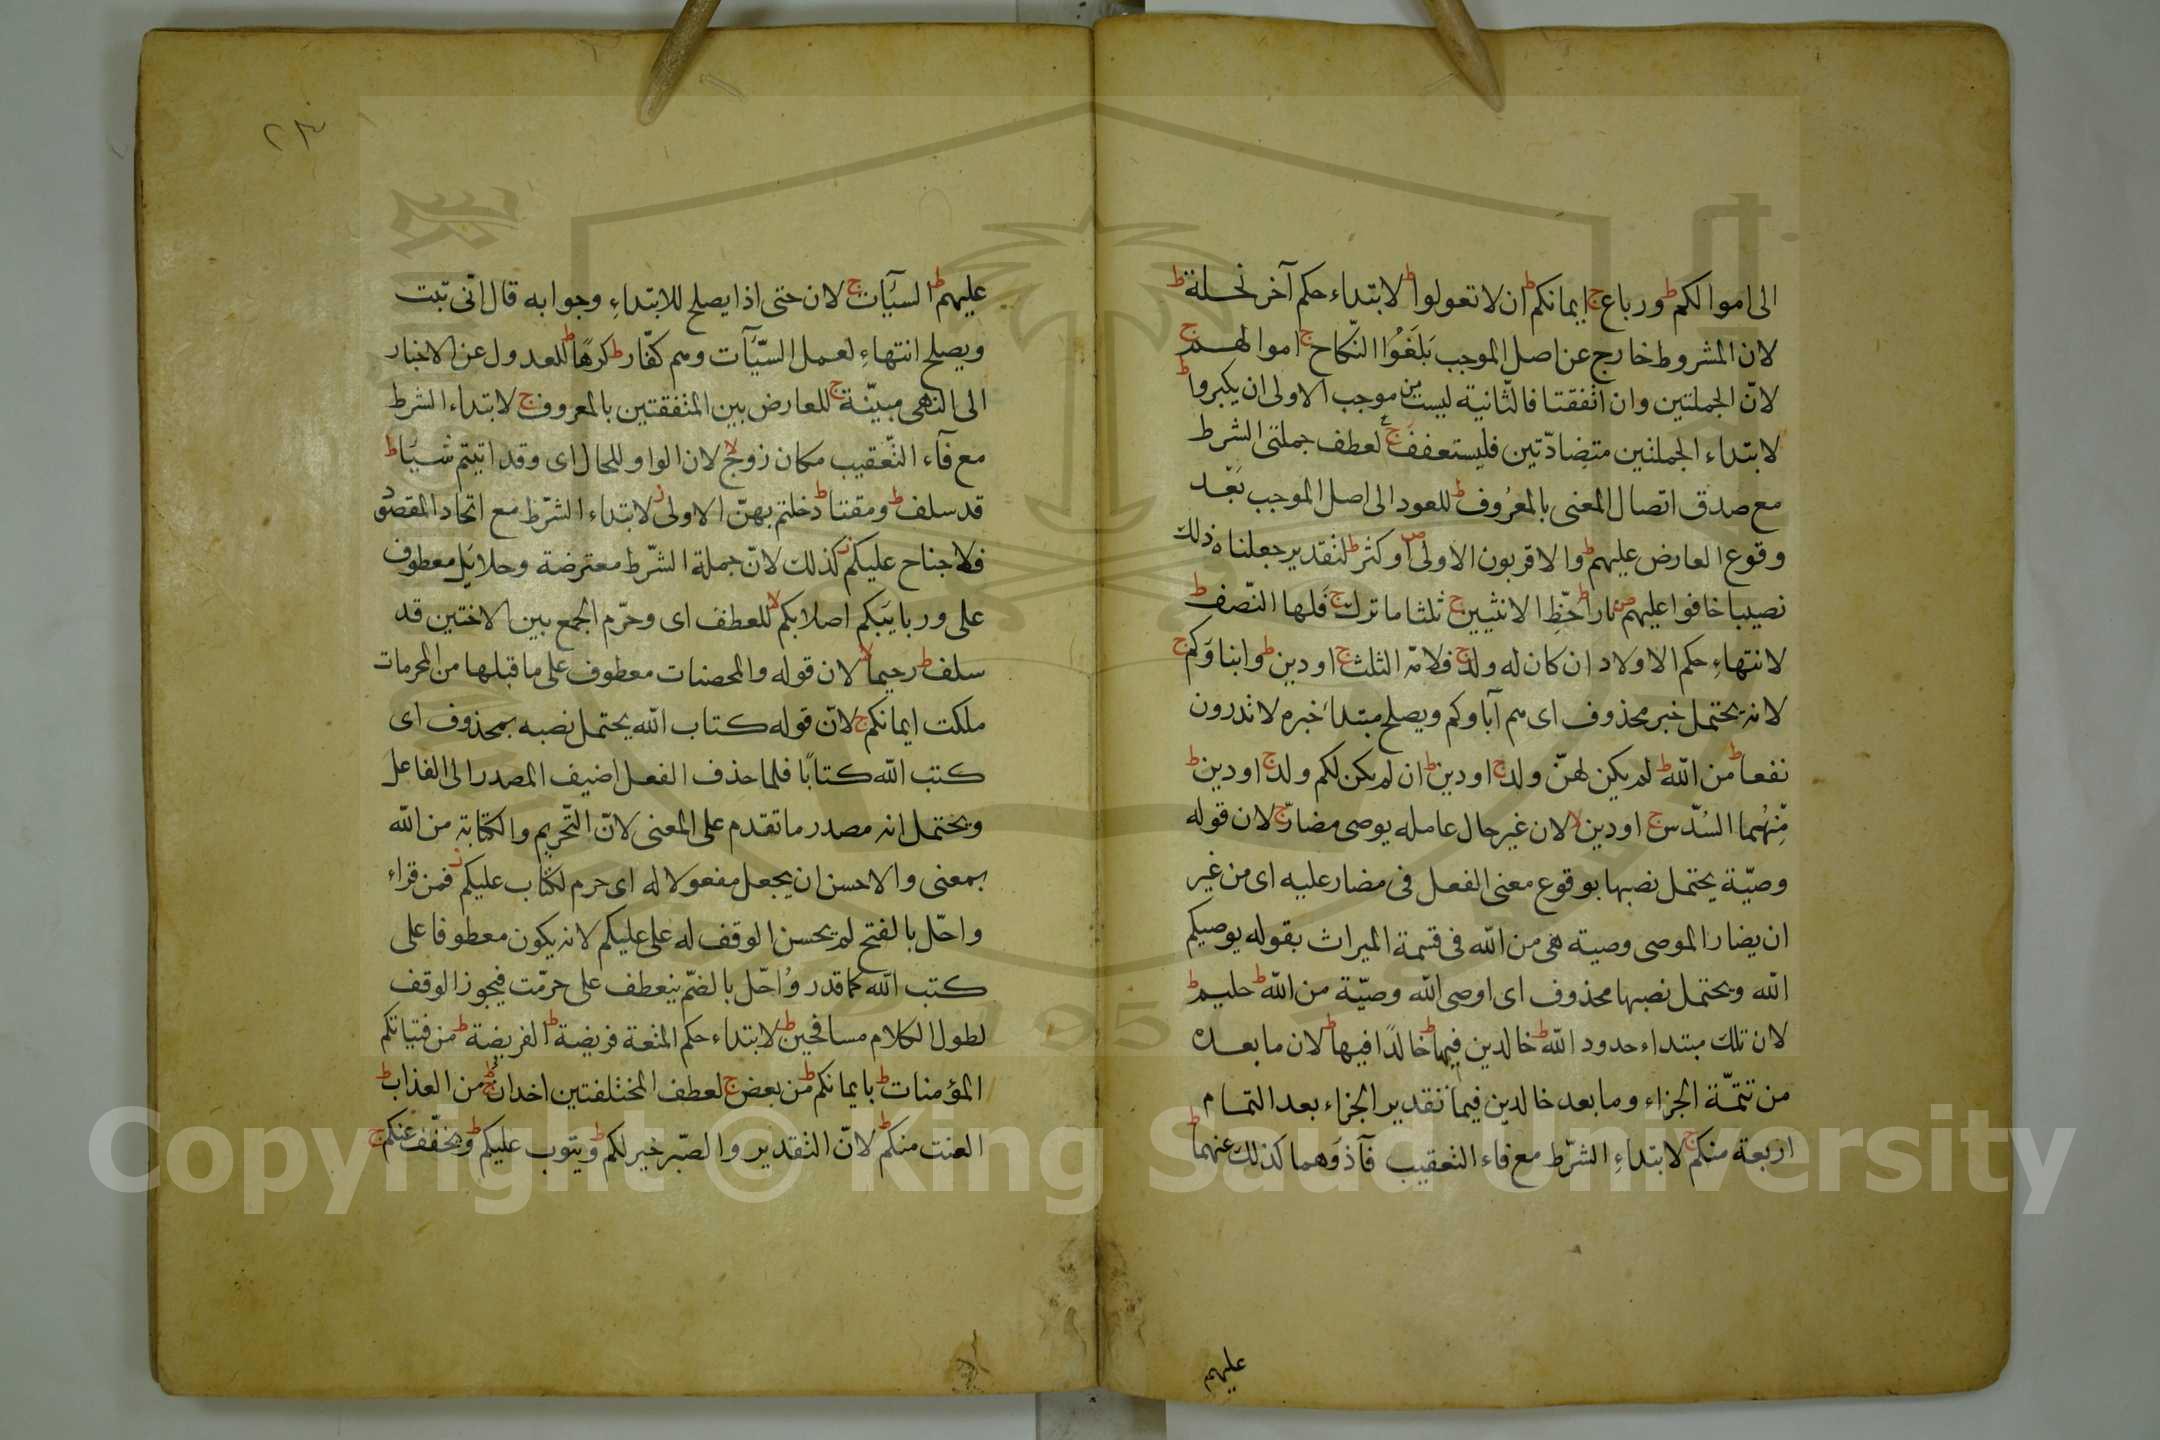 الى اموالكم ط ورباع ج ايمانكم ط ان لا تعولوا ط لابتداء حكم آخر نحلة ط
لان المشروط خارج عن اصل الموجب بَلَغُوا النّكاح ج اموالهم ج
لانّ الجملتين وان اتفقتا فالثّانية ليست من موجب الاولى ان يكبروا ط
لابتداء الجملتين متضادّتين فليستعفف ج لعطف جملتى الشرط
مع صدق اتصال المعنى بالمعرُوف ط للعود الى اصل الموجب بَعْد
وقوع العارض عليهم ط والاقربون الاولى ص او كثر ط لتقدير جعلناه ذلك
نصيبا خافوا عليهم ص نارا ط حَظِّ الانثيين ج ثلثا ما ترك ج فلها النّصف ط
لانتهاءِ حكم الاولاد ان كان له ولد ج فلامّه الثلث ج او دين ط وابناوَكم ج
لانه يحتمل خبر محذوف اى هم آباوكم ويصلح مبتداَ خبره لا تدرون
نفعا ط من الله ط لم يكن لهنّ ولد ج او دين ط ان لم يكن لكم ولد ج او دين ط
مِّنهُما السُدّس ج او دين لا لان غير حال عامله يوصى مضارّ ج لان قوله
وصيّة يحتمل نصبها بوقوع معنى الفعل فى مضار عليه اى من غير
ان يضار الموصى وصية هى من الله فى قسمة الميراث بقوله يوصيكم
الله ويحتمل نصبها محذوف اى اوصى الله وصيّة من الله ط حليم ط
لان تلك مبتداء حدود الله ط خالدين فيها ط خالدًا فيها ط لان ما بعده
من تتمّة الجزاء وما بعد خالدين فيها تقدير الجزاء بعد التمام
اربعة منكم ج لابتداءِ الشّرط مع فاء التعقيب فآذوَهما كذلك عنهما ط
عليهم
٢٣
عليهم ط السئَات ج لان حتى اذا يصلح للابتداءِ وجوابه قال انى تبت
ويصلح انتهاءِ لعمل السّئَات وهم كفّار ط كرهًا ط للعدول عن الاخبار
الى النهى مبيّنة ج للعارض بين المتفقتين بالمعروف ج لابتداء الشرط
مع فآء التّعقيب مكان زوج لا لان الواو للحال اى وقد اتيتم شئَا ط
قد سلف ط ومقتا ط دخلتم بهنّ الاولى ز لابتداء الشّرط مع اتحاد المقصود
فلا جناح عليكم ز كذلك لانّ جملة الشّرط معترضة وحلايَل معطوف
على وربايَبكم اصلابكم لا للعطف اى وحرّم الجمع بين الاختين قد
سلف ط رحيما لا لان قوله والمحصنات معطوف على ما قبلها من المحرمات
ملكت ايمانكم ج لانّ قوله كتاب الله يحتمل نصبه بمحذوف اى
كتب الله كتابًا فلما حذف الفعل اضيف المصدر الى الفاعل
ويحتمل انه مصدر ما تقدم على المعنى لانّ التّحريم والكتابة من الله
بمعنى والاحسن ان يجعل مفعولا له اى حرم لكتاب عليكم ز فمن قراء
واحّل بالفتح لم يحسن الوقف له على عليكم لانه يكون معطوفا على
كتب الله كما قدر وُاحّل بالضّم ينعطف على حرّمت فيجوز الوقف
لطول الكلام مسافحين ط لابتداء حكم المتعة فريضة ط الفريضة ط من فتياتكم
المؤمنات ط بايمانكم ط من بعض ج لعطف المختلفتين اخدان ج من العذاب ط
العنت منكم ط لانّ التقدير والصّبر خير لكم ط ويتوب عليكم ط ويخفّف عنكم ج